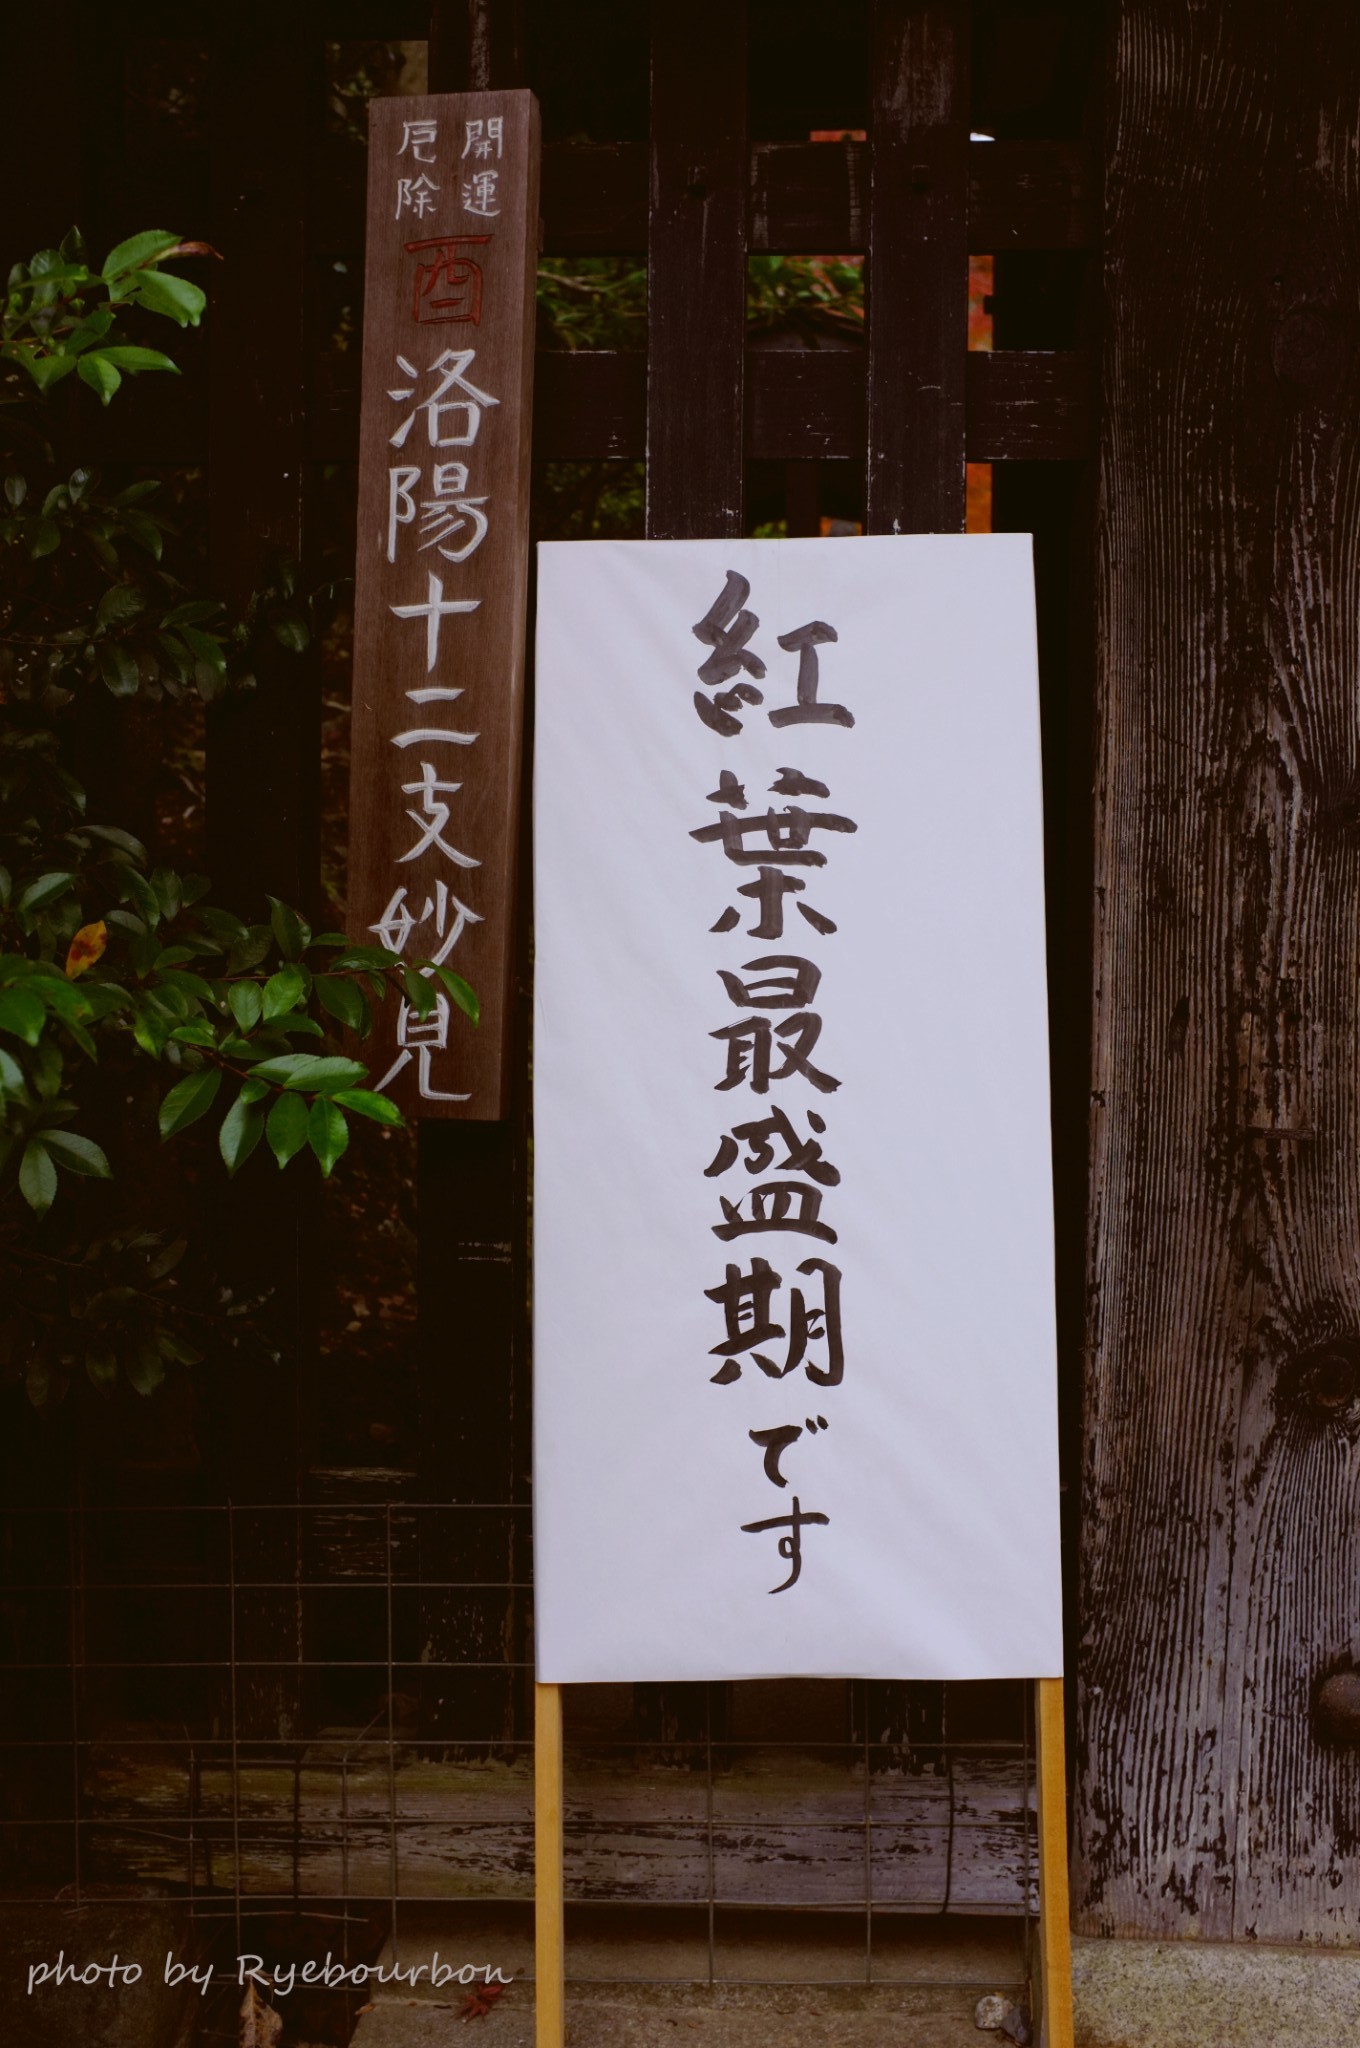 開運
厄除
酉
洛陽十二支妙見
紅葉最盛期です
photo by Ryebourbon